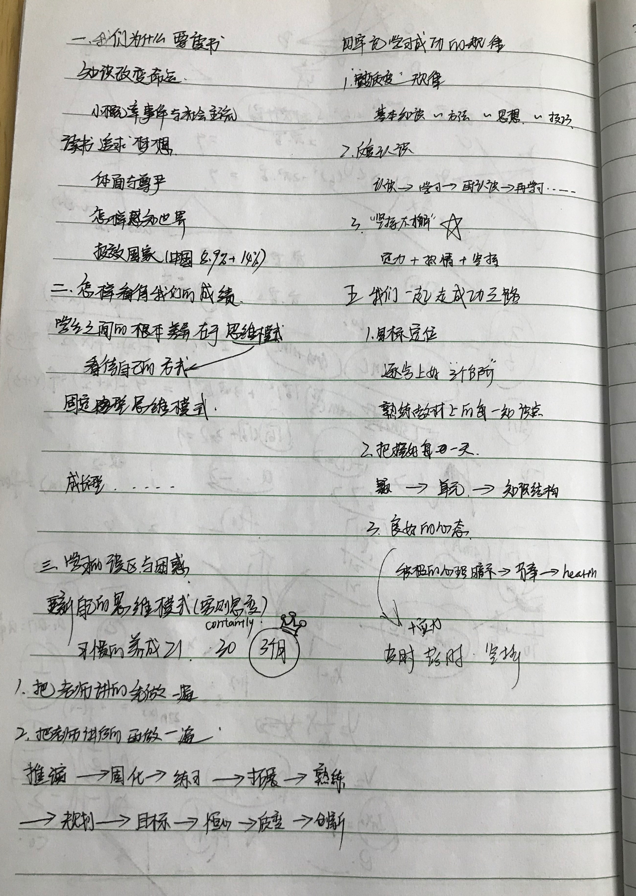 一、我们为什么要读书
知识改变命运
小概率事件与社会主流
读书追求梦想
体面与尊严
怎样感知世界
拯救国家(中国 6.9% + 14%)
二、怎样看待我们的成绩
学生之间的根本差异在于思维模式
看待自己的方式
固定型思维模式.
成长型.....
三、学习的误区与困惑
更新自己的思维模式(穷则思变)
certainly
习惯的养成 21. 30 3个月
1. 把老师讲的先做一遍
2. 把老师讲的再做一遍
推演→固化→练习→拓展→熟练
→规划→目标→恒心→改变→创新
四、牢记学习成功的规律
1. 规律
基本知识 方法 思想 技巧
2. 反复认识
认识→学习→再认识→再学习......
3. "坚持不懈" ☆
毅力+热情+坚持
五、我们一起走成功之路
1. 目标定位
逐步上好"3个台阶"
熟练教材上的每一知识点
2. 把握好每一天.
→单元→知识结构
3. 良好的心态
积极的心理暗示→ →health
+努力
坚持